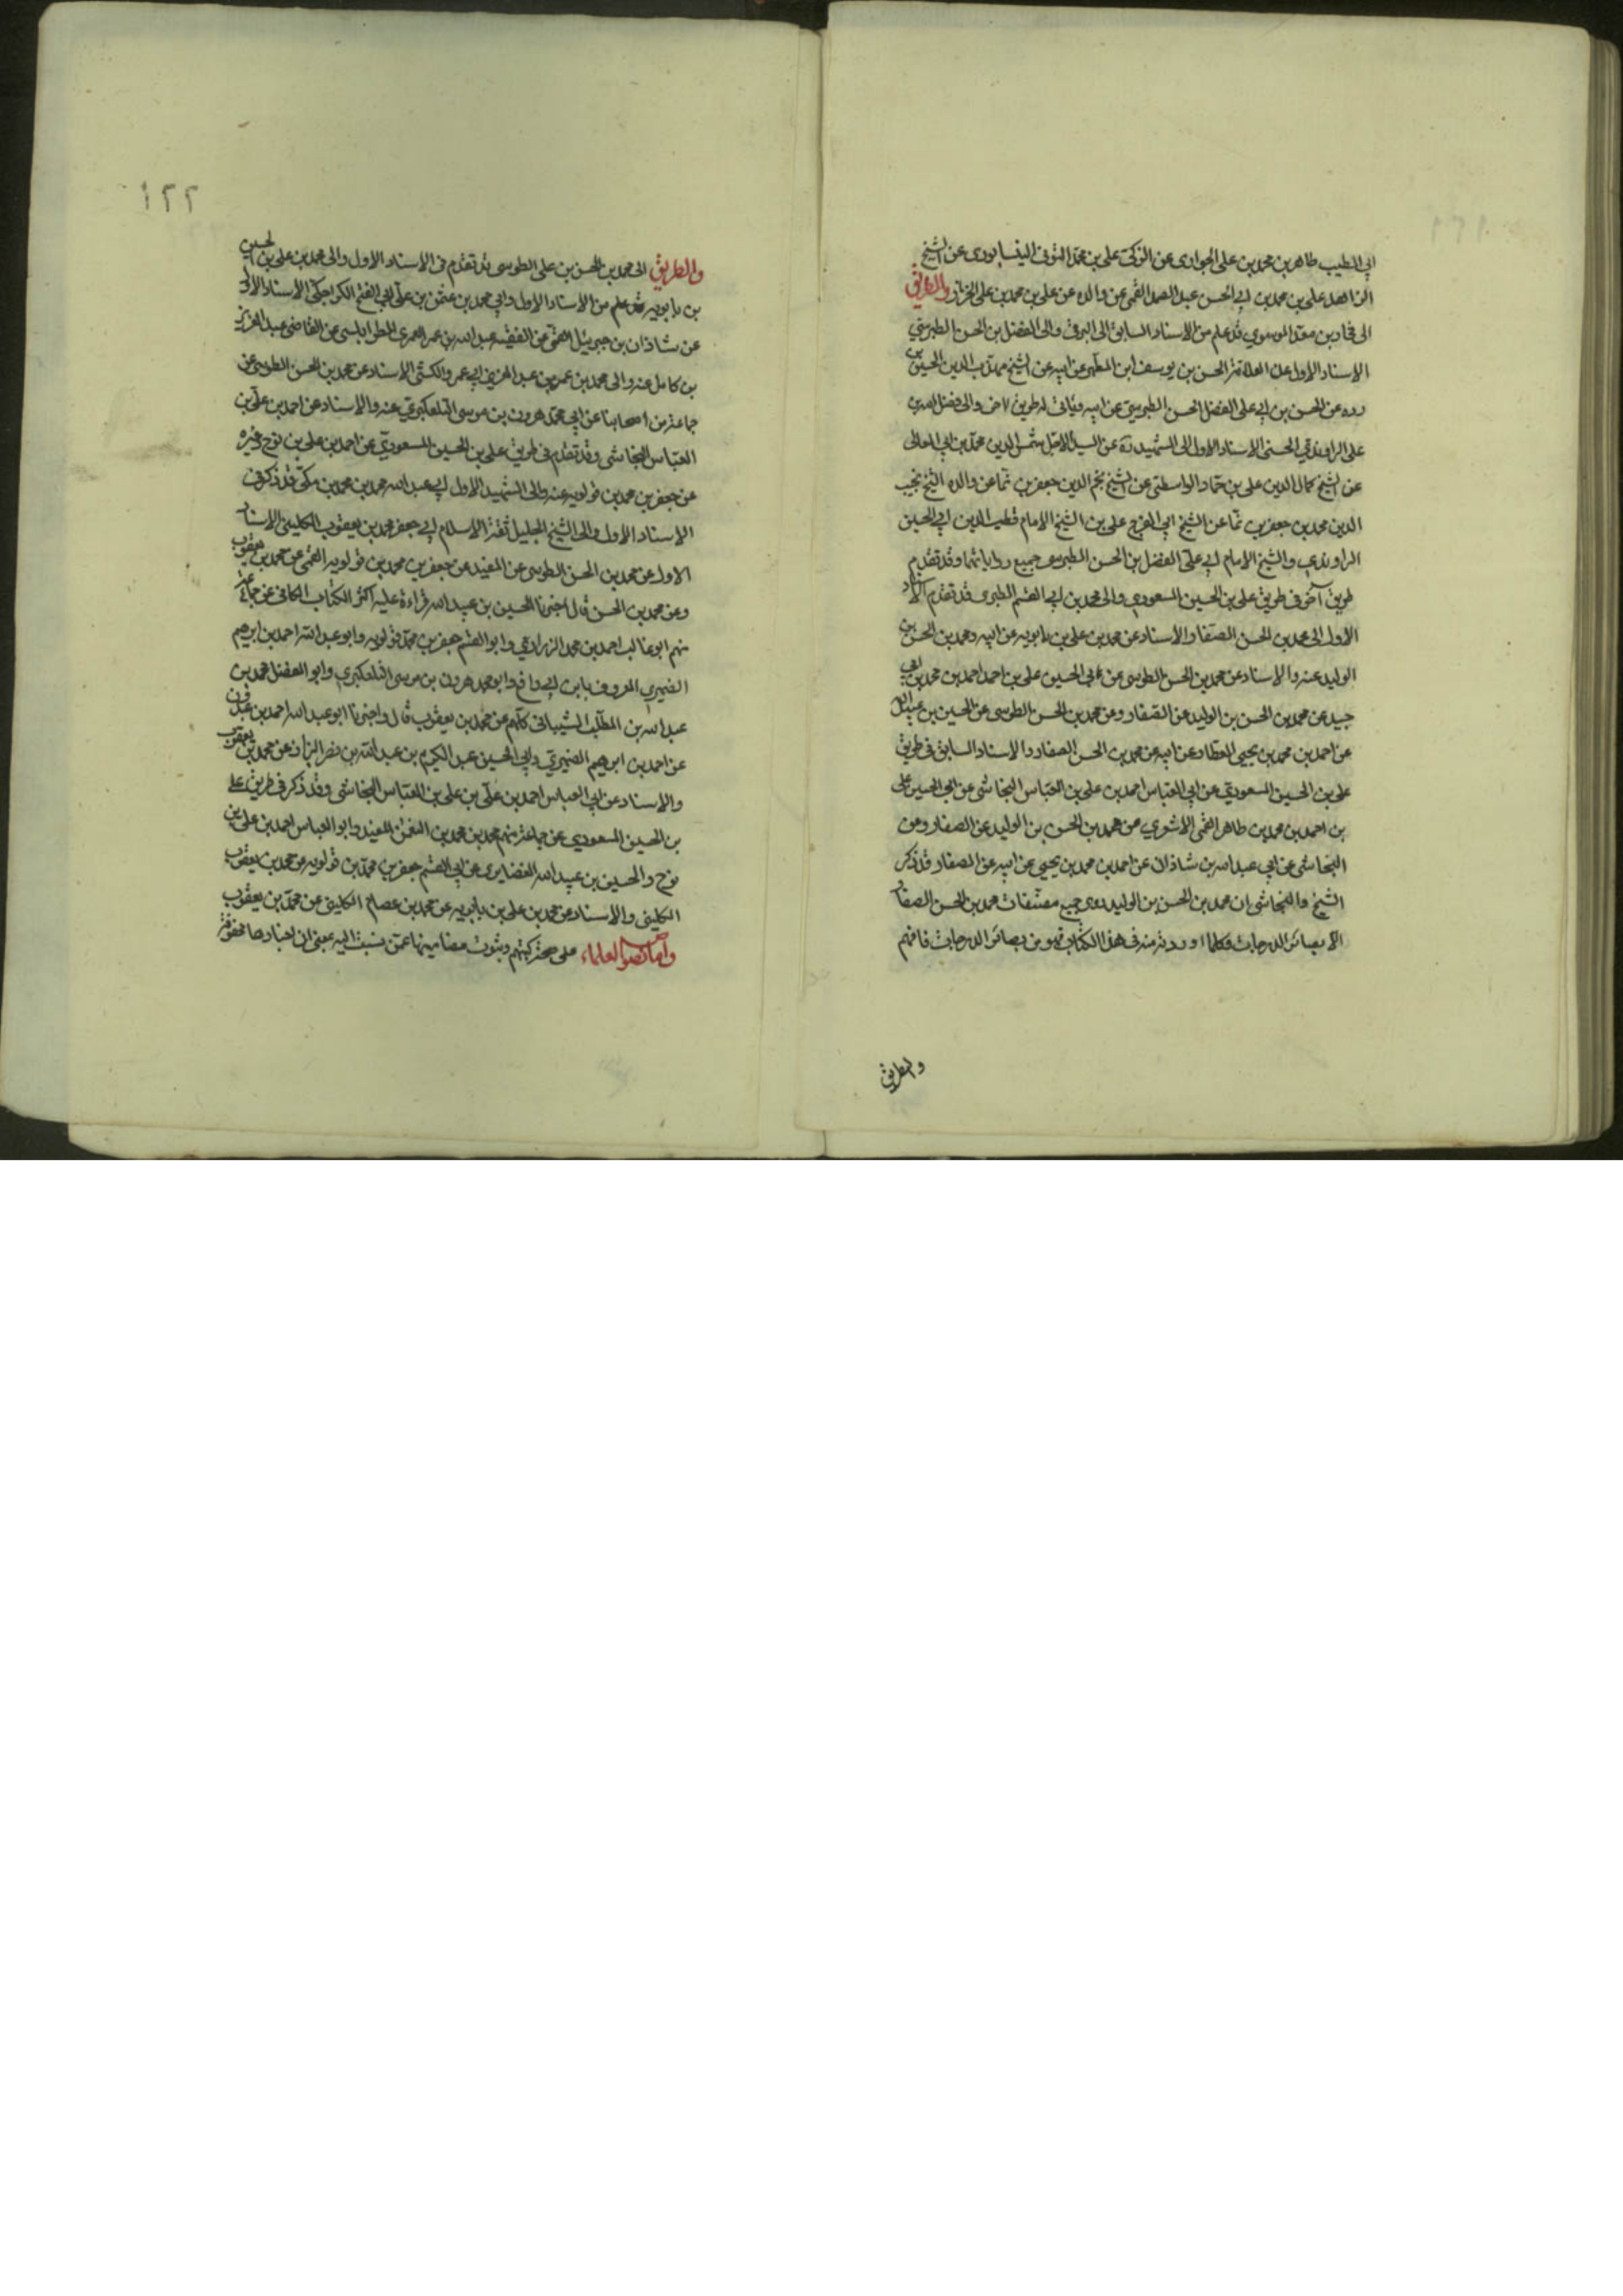 ابي الطيب طاهر بن محمد بن على الجوارى عن الزكى على بن محمد النيسابورى عن الشيخ
الزاهد على بن محمد بن ابي الحسن عبد الصمد القمى عن والده عن على بن محمد بن على الخزاز والطريق
الى فخار بن معد الموسوي قد علم من الاسناد السابق الى البرقى والى الفضل بن الحسن الطبرسي
الاسناد الاول عن العلامة الحسن بن يوسف ابن المطهر عن ابيه عن الشيخ مهذب الدين الحسين بن
رده عن الحسن بن ابي على الفضل الحسن الطبرسي عن ابيه وياتى له طريق اخر والى فضل الله بن
على الراوندي الحسنى الاسناد الاول الى الشهيد ره عن السيد الاجل شمس الدين محمد بن ابي المعالى
عن الشيخ كمال الدين على بن حماد الواسطى عن الشيخ نجم الدين جعفر بن نما عن والده الشيخ نجيب
الدين محمد بن جعفر بن نما عن الشيخ ابي الفرج على بن الشيخ الامام قطب الدين ابي الحسين
الراوندي والشيخ الامام ابي على الفضل بن الحسن الطبرسى جميع رواياتهما وقد تقدم
طريق آخر فى طريق على بن الحسين المسعودي والى محمد بن ابي القسم الطبرى قد تقدم الاسناد
الاول الى محمد بن الحسن الصفار والاسناد عن محمد بن على بن بابويه عن ابيه ومحمد بن الحسن بن
الوليد عنه والاسناد عن محمد بن الحسن الطوسى عن ابي الحسين على بن احمد بن محمد بن ابي
جيد عن محمد بن الحسن بن الوليد عن الصفار وعن محمد بن الحسن الطوسى عن الحسين بن عبيد الله
عن احمد بن محمد بن يحيى العطار عن ابيه عن محمد بن الحسن الصفار والاسناد السابق فى طريق
على بن الحسين المسعودي عن ابي العباس احمد بن على بن العباس النجاشى عن ابي الحسين على
بن احمد بن محمد بن طاهر القمى الاشعري عن محمد بن الحسن بن الوليد عن الصفار وعن
النجاشى عن ابي عبد الله بن شاذان عن احمد بن محمد بن يحيى عن ابيه عن الصفار قد ذكر
الشيخ والنجاشى ان محمد بن الحسن بن الوليد روى جميع مصنفات محمد بن الحسن الصفار
الا بصائر الدرجات فكلما اوردته منه فى هذا الكتاب فهو من بصائر الدرجات فافهم
والطريق
١٢٢
والطريق الى محمد بن الحسن بن على الطوسى قد تقدم فى الاسناد الاول والى محمد بن على بن الحسين
بن بابويه قد علم من الاسناد الاول والى محمد بن عثمن بن على ابي الفتح الكراجكى الاسناد الاول
عن شاذان بن جبرئيل القمى عن الفقيه عبد الله بن عمر العمرى الطرابلسى عن القاضى عبد العزيز
بن كامل عنه والى محمد بن عمر بن عبد العزيز ابي عمرو الكشى الاسناد عن محمد بن الحسن الطوسى عن
جماعة من اصحابنا عن ابي محمد هرون بن موسى التلعكبري عنه والاسناد عن احمد بن على بن
العباس النجاشى وقد تقدم فى طريق على بن الحسين المسعودي عن احمد بن على بن نوح وغيره
عن جعفر بن محمد بن قولويه عنه والى الشهيد الاول ابي عبد الله محمد بن محمد بن مكى قد ذكر فى
الاسناد الاول والى الشيخ الجليل ثقة الاسلام ابي جعفر محمد بن يعقوب الكلينى الاسناد
الاول عن محمد بن الحسن الطوسى عن المفيد عن جعفر بن محمد بن قولويه القمى عن محمد بن يعقوب
وعن محمد بن الحسن قال اخبرنا الحسين بن عبيد الله قراءة عليه اكثر الكتاب الكافى عن جماعة
منهم ابو غالب احمد بن محمد الزراري وابو القسم جعفر بن محمد قولويه وابو عبد الله احمد بن ابرهيم
الصيمري المعروف بابن ابي رافع وابو محمد هرون بن موسى التلعكبري وابو الفضل محمد بن
عبد الله بن المطلب الشيبانى كلهم عن محمد بن يعقوب قال واخبرنا ابو عبد الله احمد بن عبدون
عن احمد بن ابرهيم الصيمري وابي الحسين عبد الكريم بن عبد الله بن نصر البزاز عن محمد بن يعقوب
والاسناد عن ابي العباس احمد بن على بن على بن العباس النجاشى وقد ذكر فى طريق على
بن الحسين المسعودي عن جماعة منهم محمد بن محمد بن النعمن المفيد وابو العباس احمد بن على بن
نوح والحسين بن عبيد الله الغضايرى عن ابي القسم جعفر بن محمد بن قولويه عن محمد بن يعقوب
الكلينى والاسناد عن محمد بن على بن بابويه عن محمد بن عصام الكلينى عن محمد بن يعقوب
واما نصوا العلماء على صحة كتبهم وثبوت مضامينها عمن نسبت اليه بمعنى ان اخبارها محفوفة